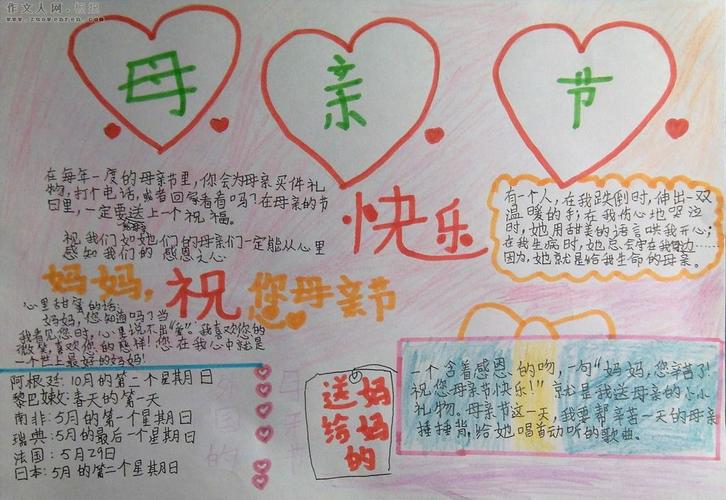 作文人网
www.zuowenren.com
母 亲 节
在每年一度的母亲节里，你会为母亲买件礼
物，打个电话，或者回家看看吗？在母亲的节
日里，一定要送上一个祝福。
祝我们如她们的母亲们一定能从心里
感知我们的感恩之心
快乐
有一个人，在我跌倒时，伸出一双
温暖的手；在我伤心地哭泣
时，她用甜美的语言哄我开心；
在我生病时，她总会守在我身边……
因为，她就是给我生命的母亲。
妈妈，祝您母亲节
心里甜蜜的话：
妈妈，您知道吗？当
我看见您时，心里说不出"爱"。我喜欢您的
微笑，喜欢您的慈祥！您在我心中就是
一个世上最好的妈妈！
阿根廷：10月的第二个星期日
黎巴嫩：春天的第一天
南非：5月的第一个星期日
瑞典：5月的最后一个星期日
法国：5月29日
日本：5月的第二个星期日
送给
妈妈的
一个含着感恩的吻，一句"妈妈，您辛苦了！
祝您母亲节快乐！"就是我送母亲的小小
礼物。母亲节这一天，我要帮辛苦一天的母亲
捶捶背，给她唱首动听的歌曲。